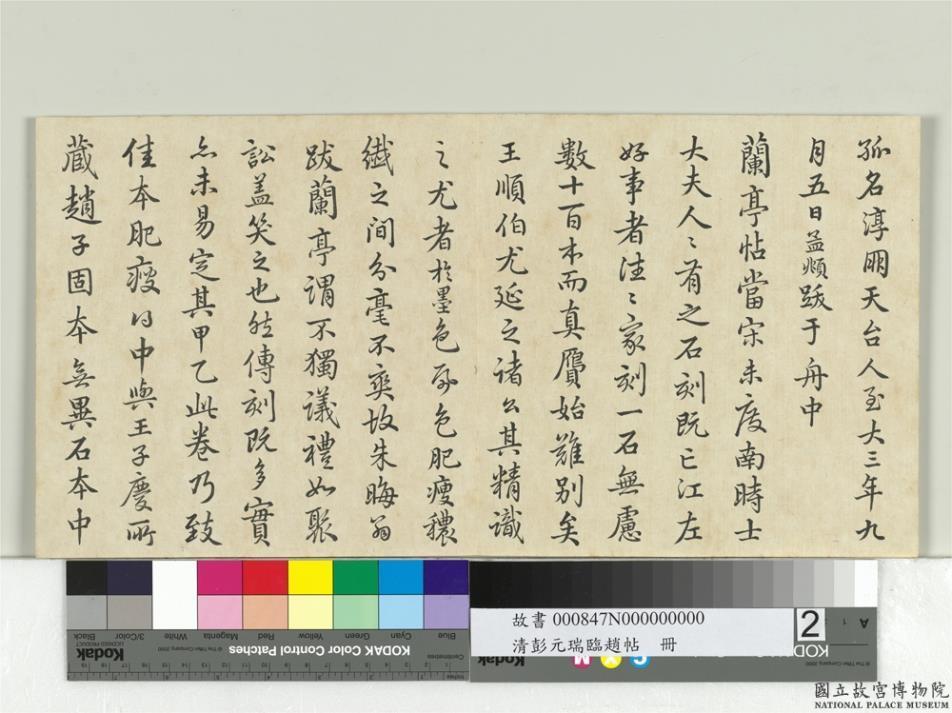 孤名淳朋天台人至大三年九
月五日孟頫跋于舟中
蘭亭帖當宋未度南時士
大夫人〻有之石刻既亡江左
好事者往〻家刻一石無慮
數十百本而真贗始難別矣
王順伯尤延之諸公其精識
之尤者於墨色紙色肥瘦穠
纖之間分毫不爽故朱晦翁
跋蘭亭謂不獨議禮如聚
訟盖笑之也然傳刻既多實
亦未易定其甲乙此卷乃致
佳本肥瘦得中與王子慶所
藏趙子固本無異石本中
Blue
Cyan
Green
Yellow
Red
Magenta
White
3/Color
Black
KODAK Color Control Patches
Kodak
LICENSED PRODUCT
© The Tiffen Company, 2000
Centimetres
Inches
故書 000847N000000000
清彭元瑞臨趙帖 冊
2
A
1
KOD
C
M
國立故宮博物院
NATIONAL PALACE MUSEUM